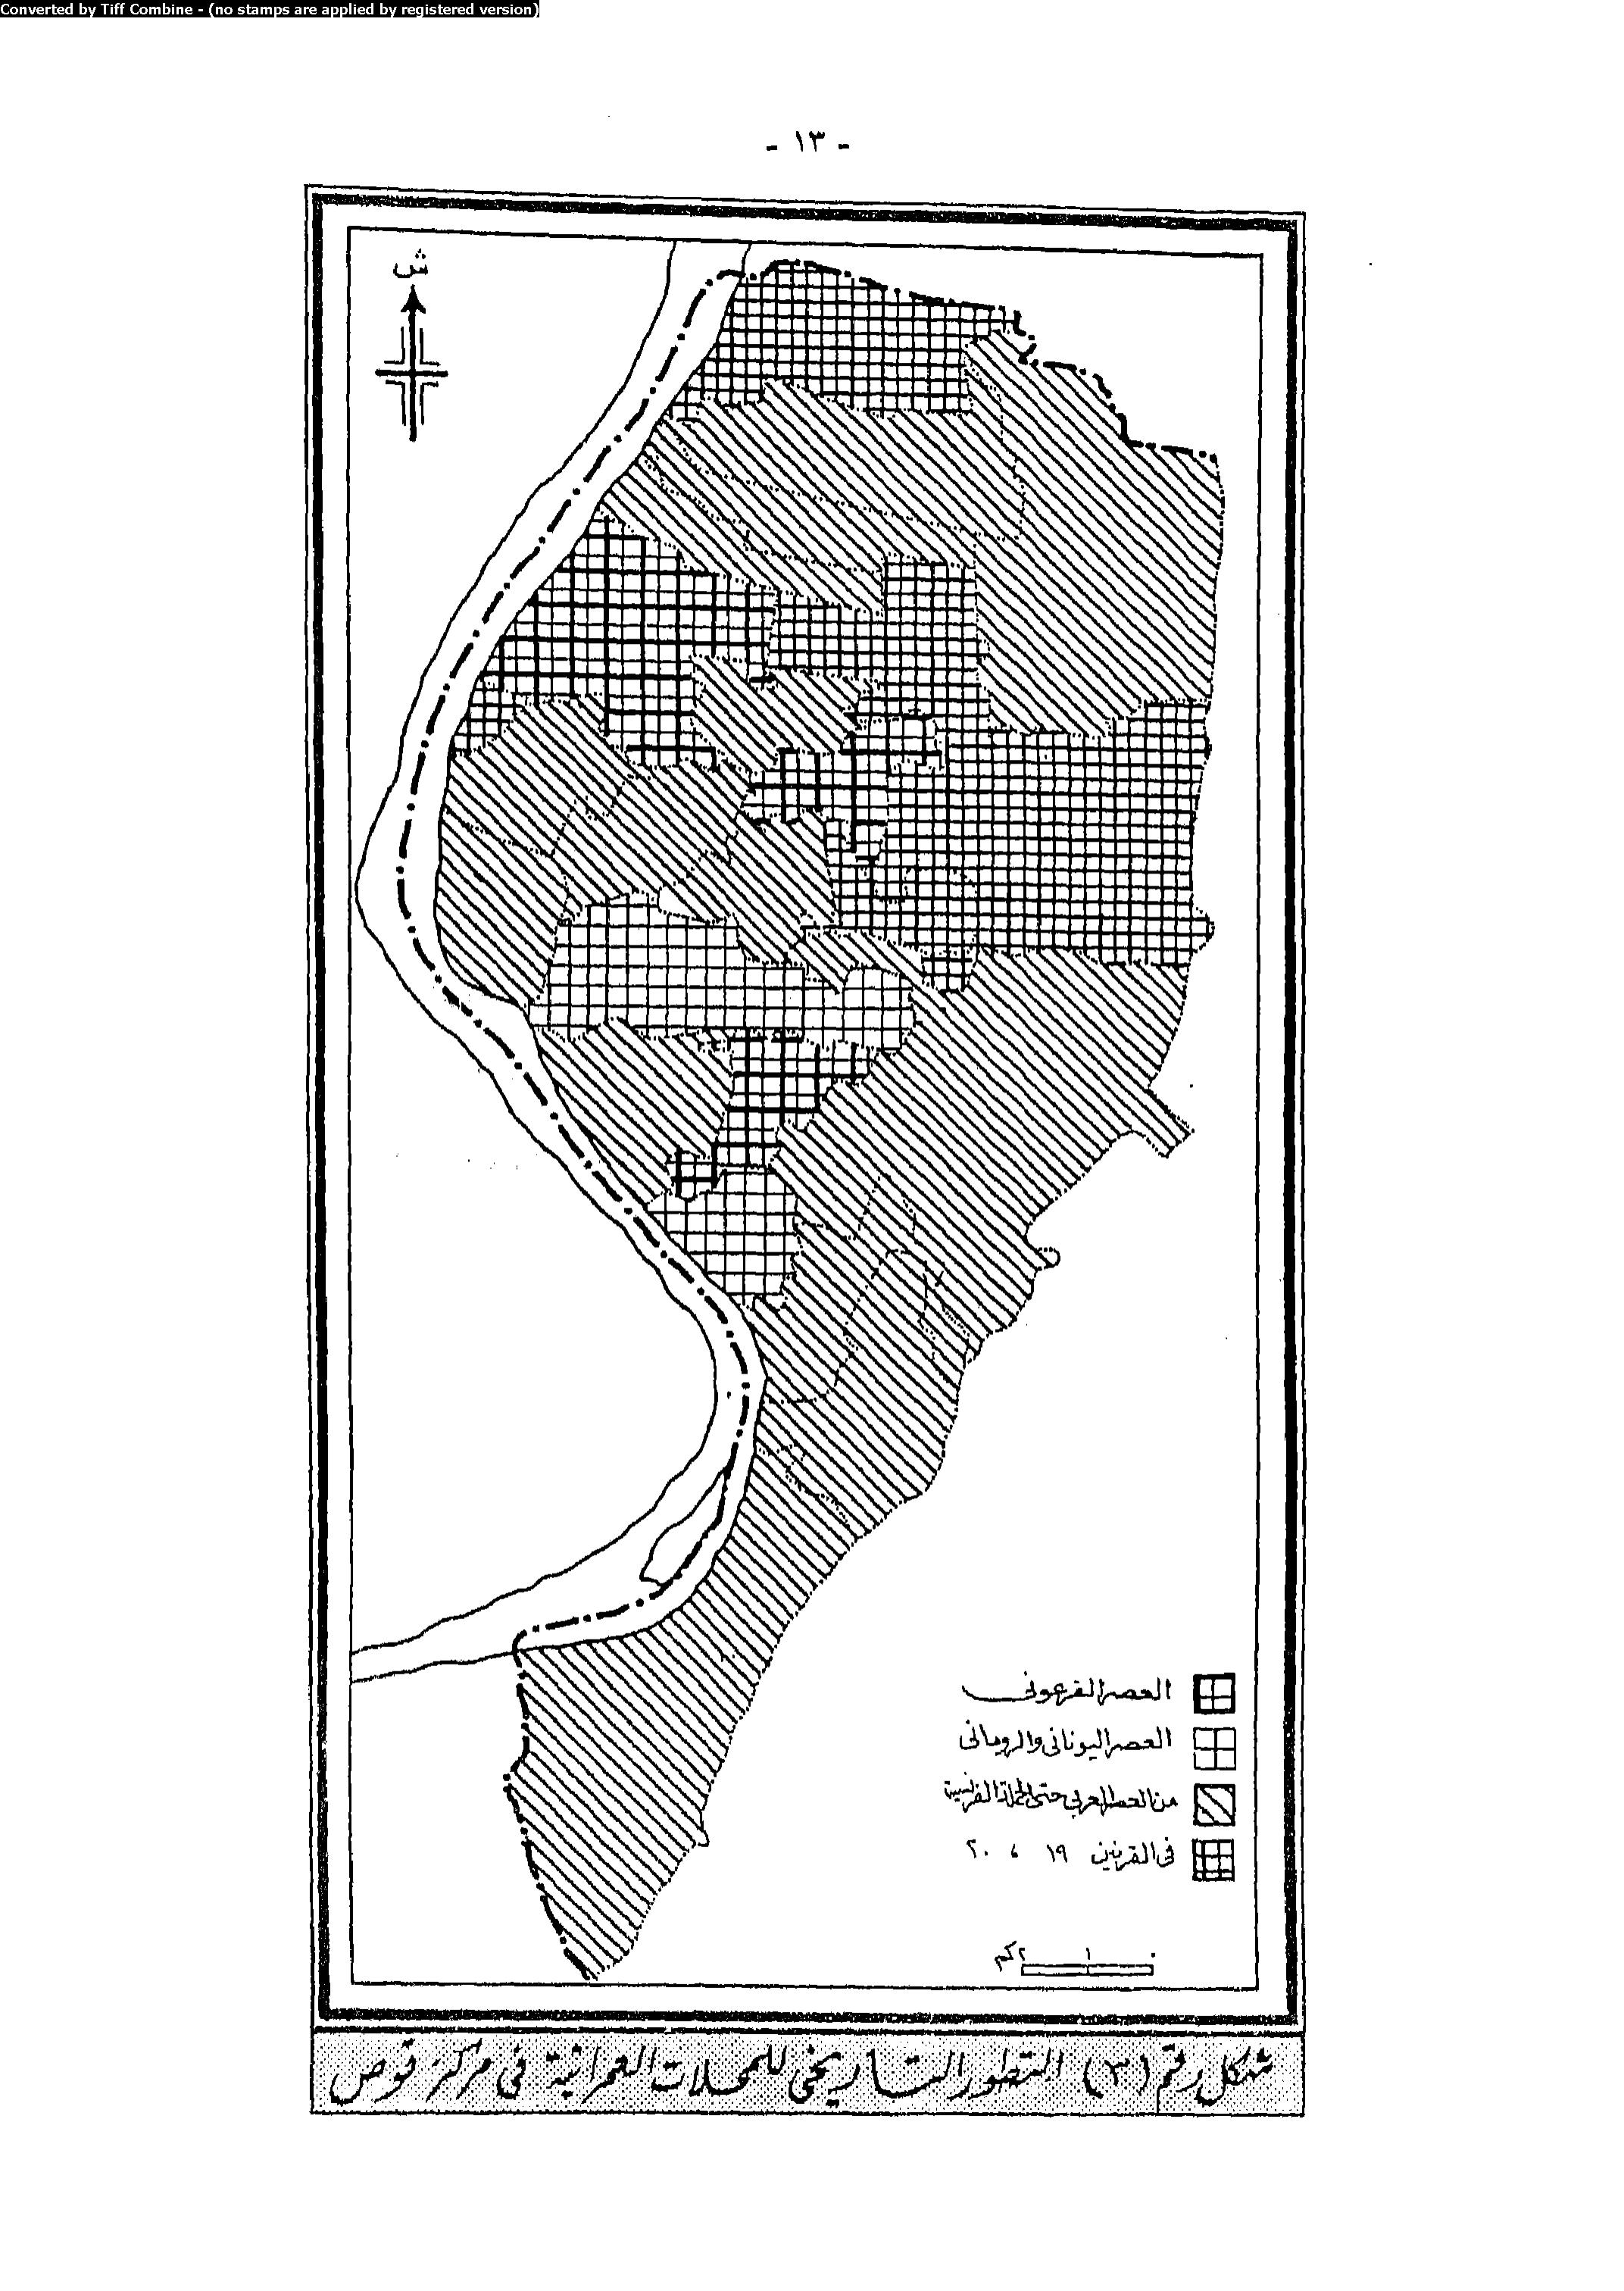 Converted by Tiff Combine - (no stamps are applied by registered version)
- ١٣ -
ش
العصر الفرعونى
العصر اليونانى والرومانى
من العصر العربى حتى الحملة الفرنسية
فى القرنين ١٩ ، ٢٠
٢كم ١ ٠
شكل رقم (٣) التطور التاريخى للمحلات العمرانية فى مركز قوص